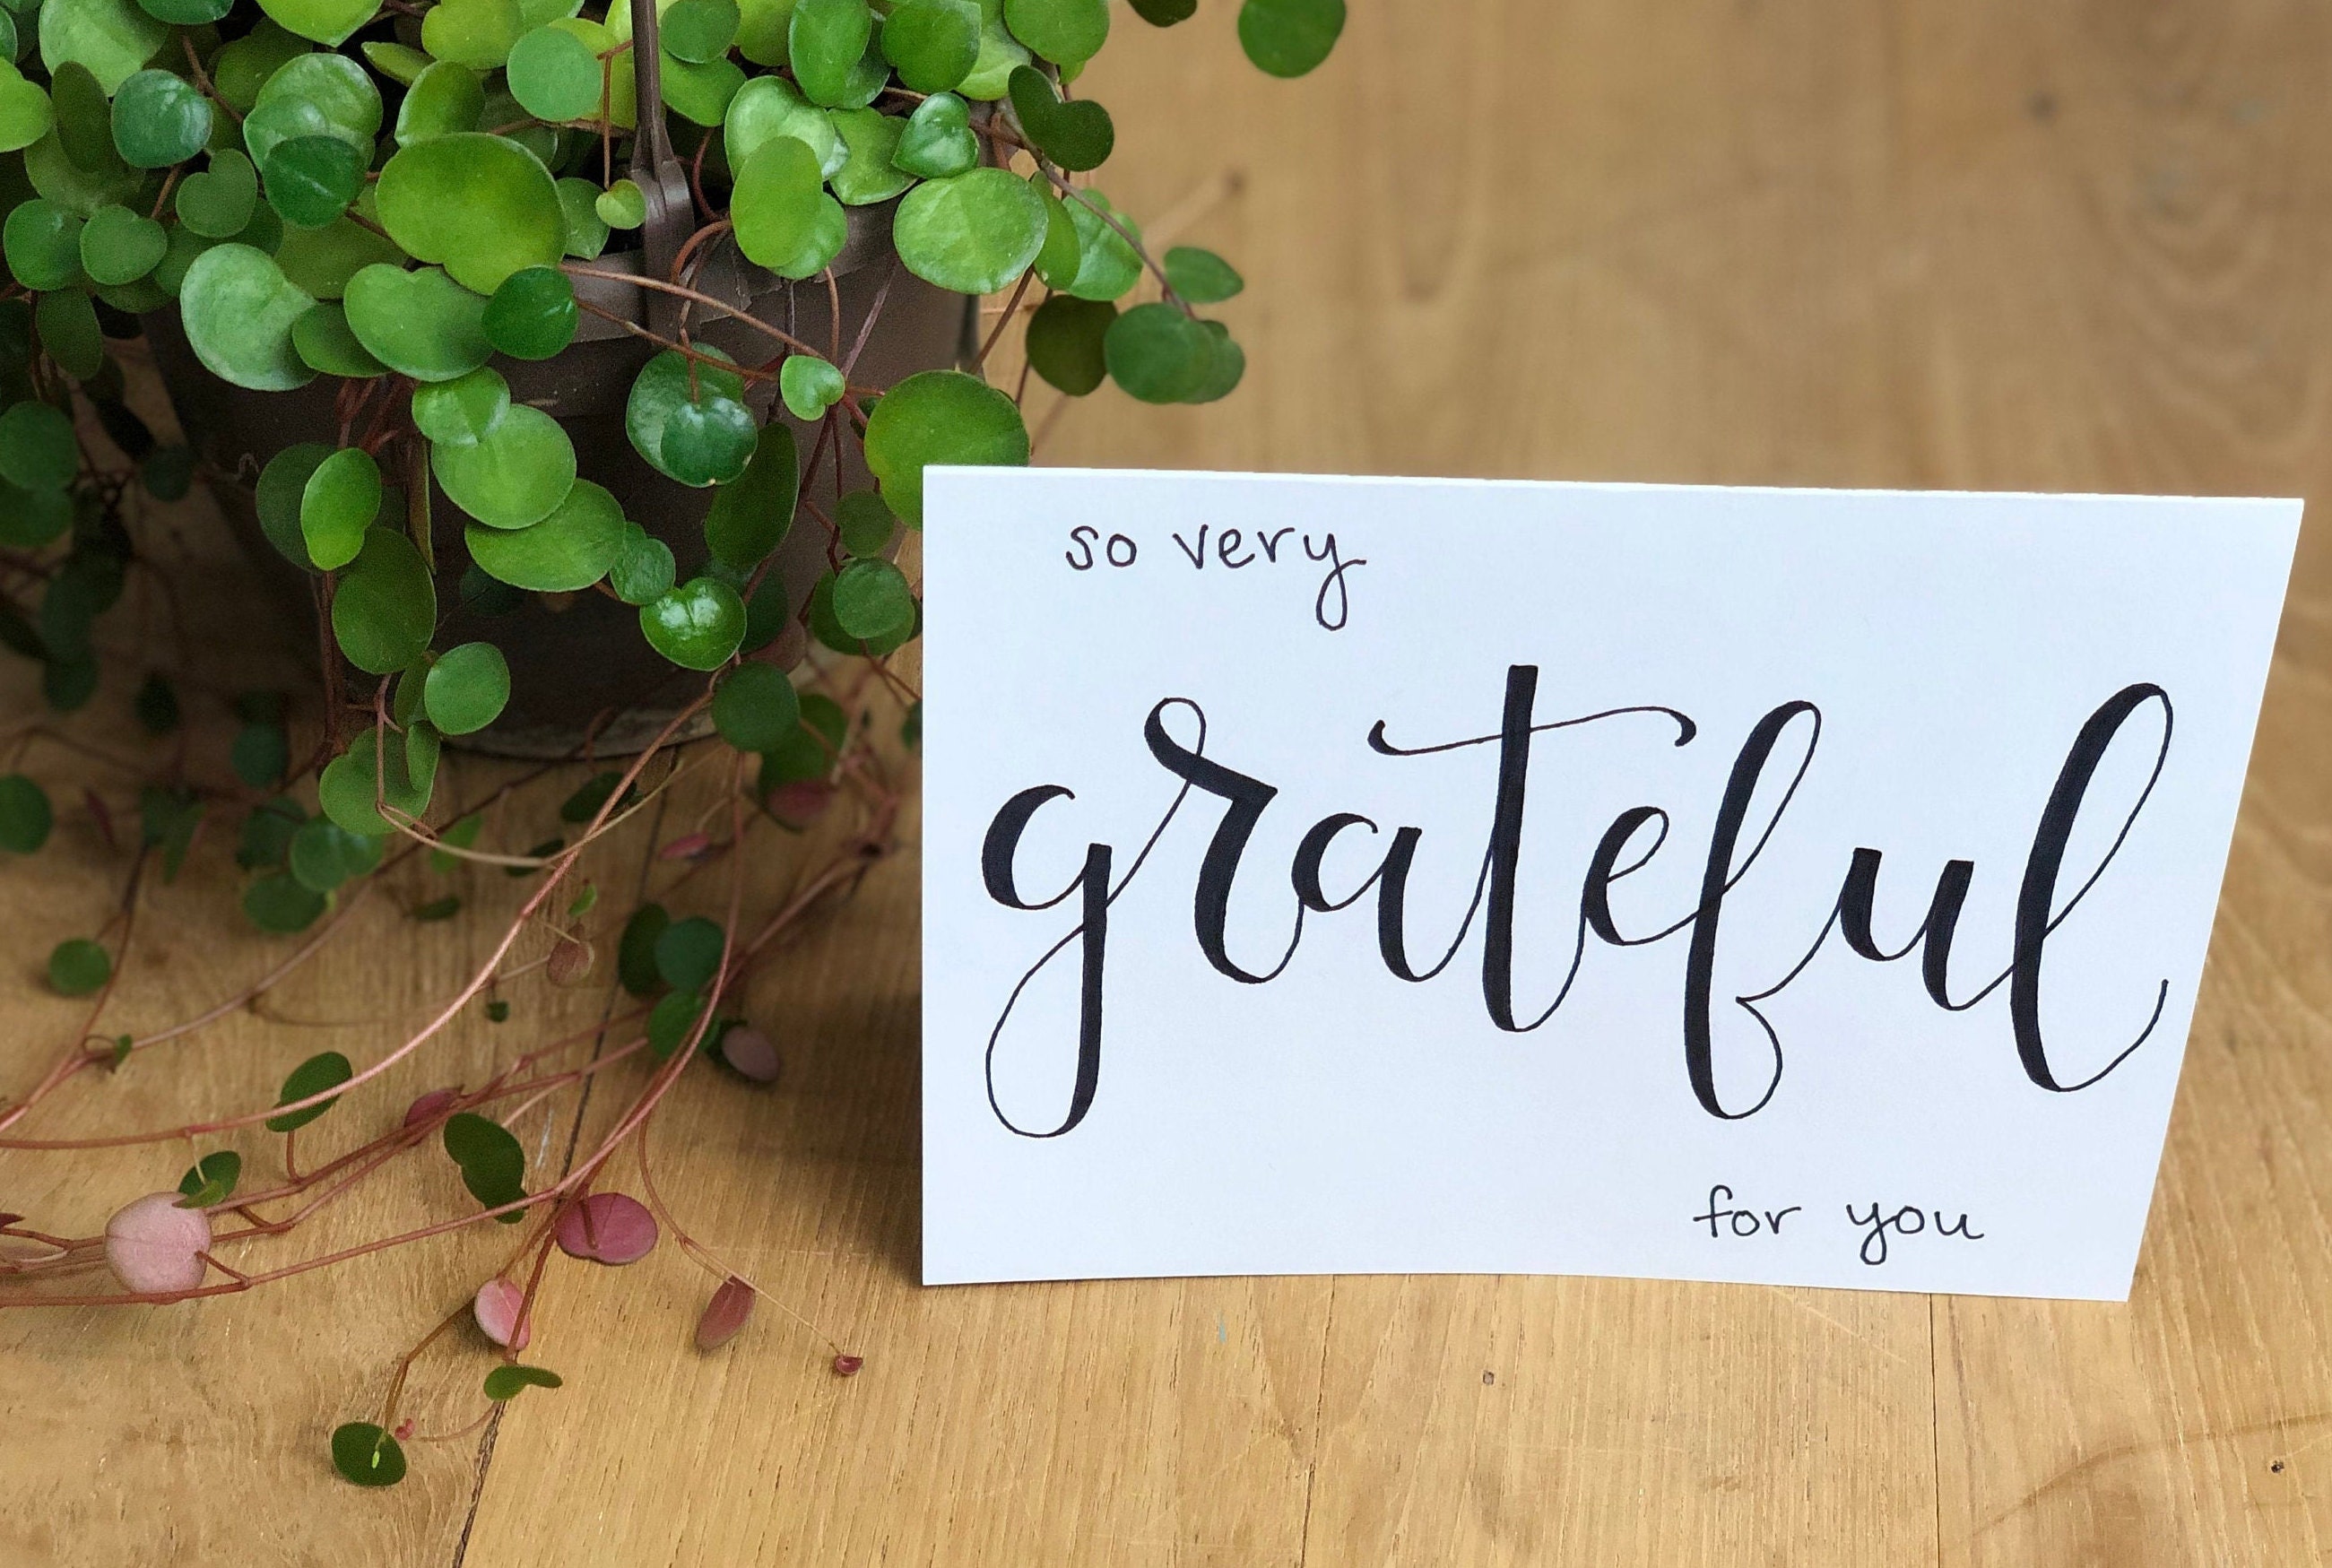 so very
grateful
for you